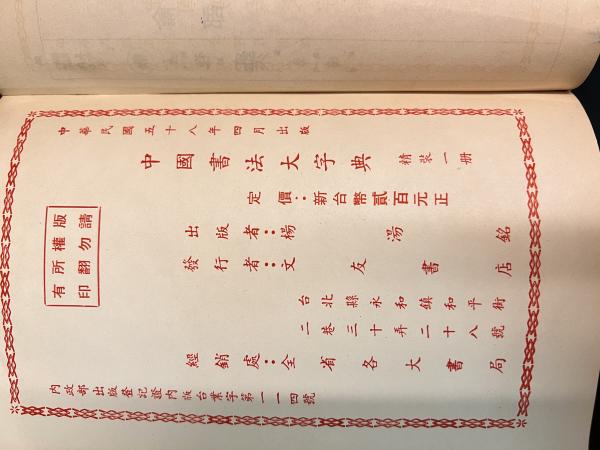 中華民國五十八年四月出版
中國書法大字典 精裝一册
定價：新台幣貳百元正
出版者：楊湯銘
發行者：文友書店
台北縣永和鎮和平街
二巷三十弄二十八號
經銷處：全省各大書局
內政部出版登記證內版台業字第一一一四號
版權所有
請勿翻印